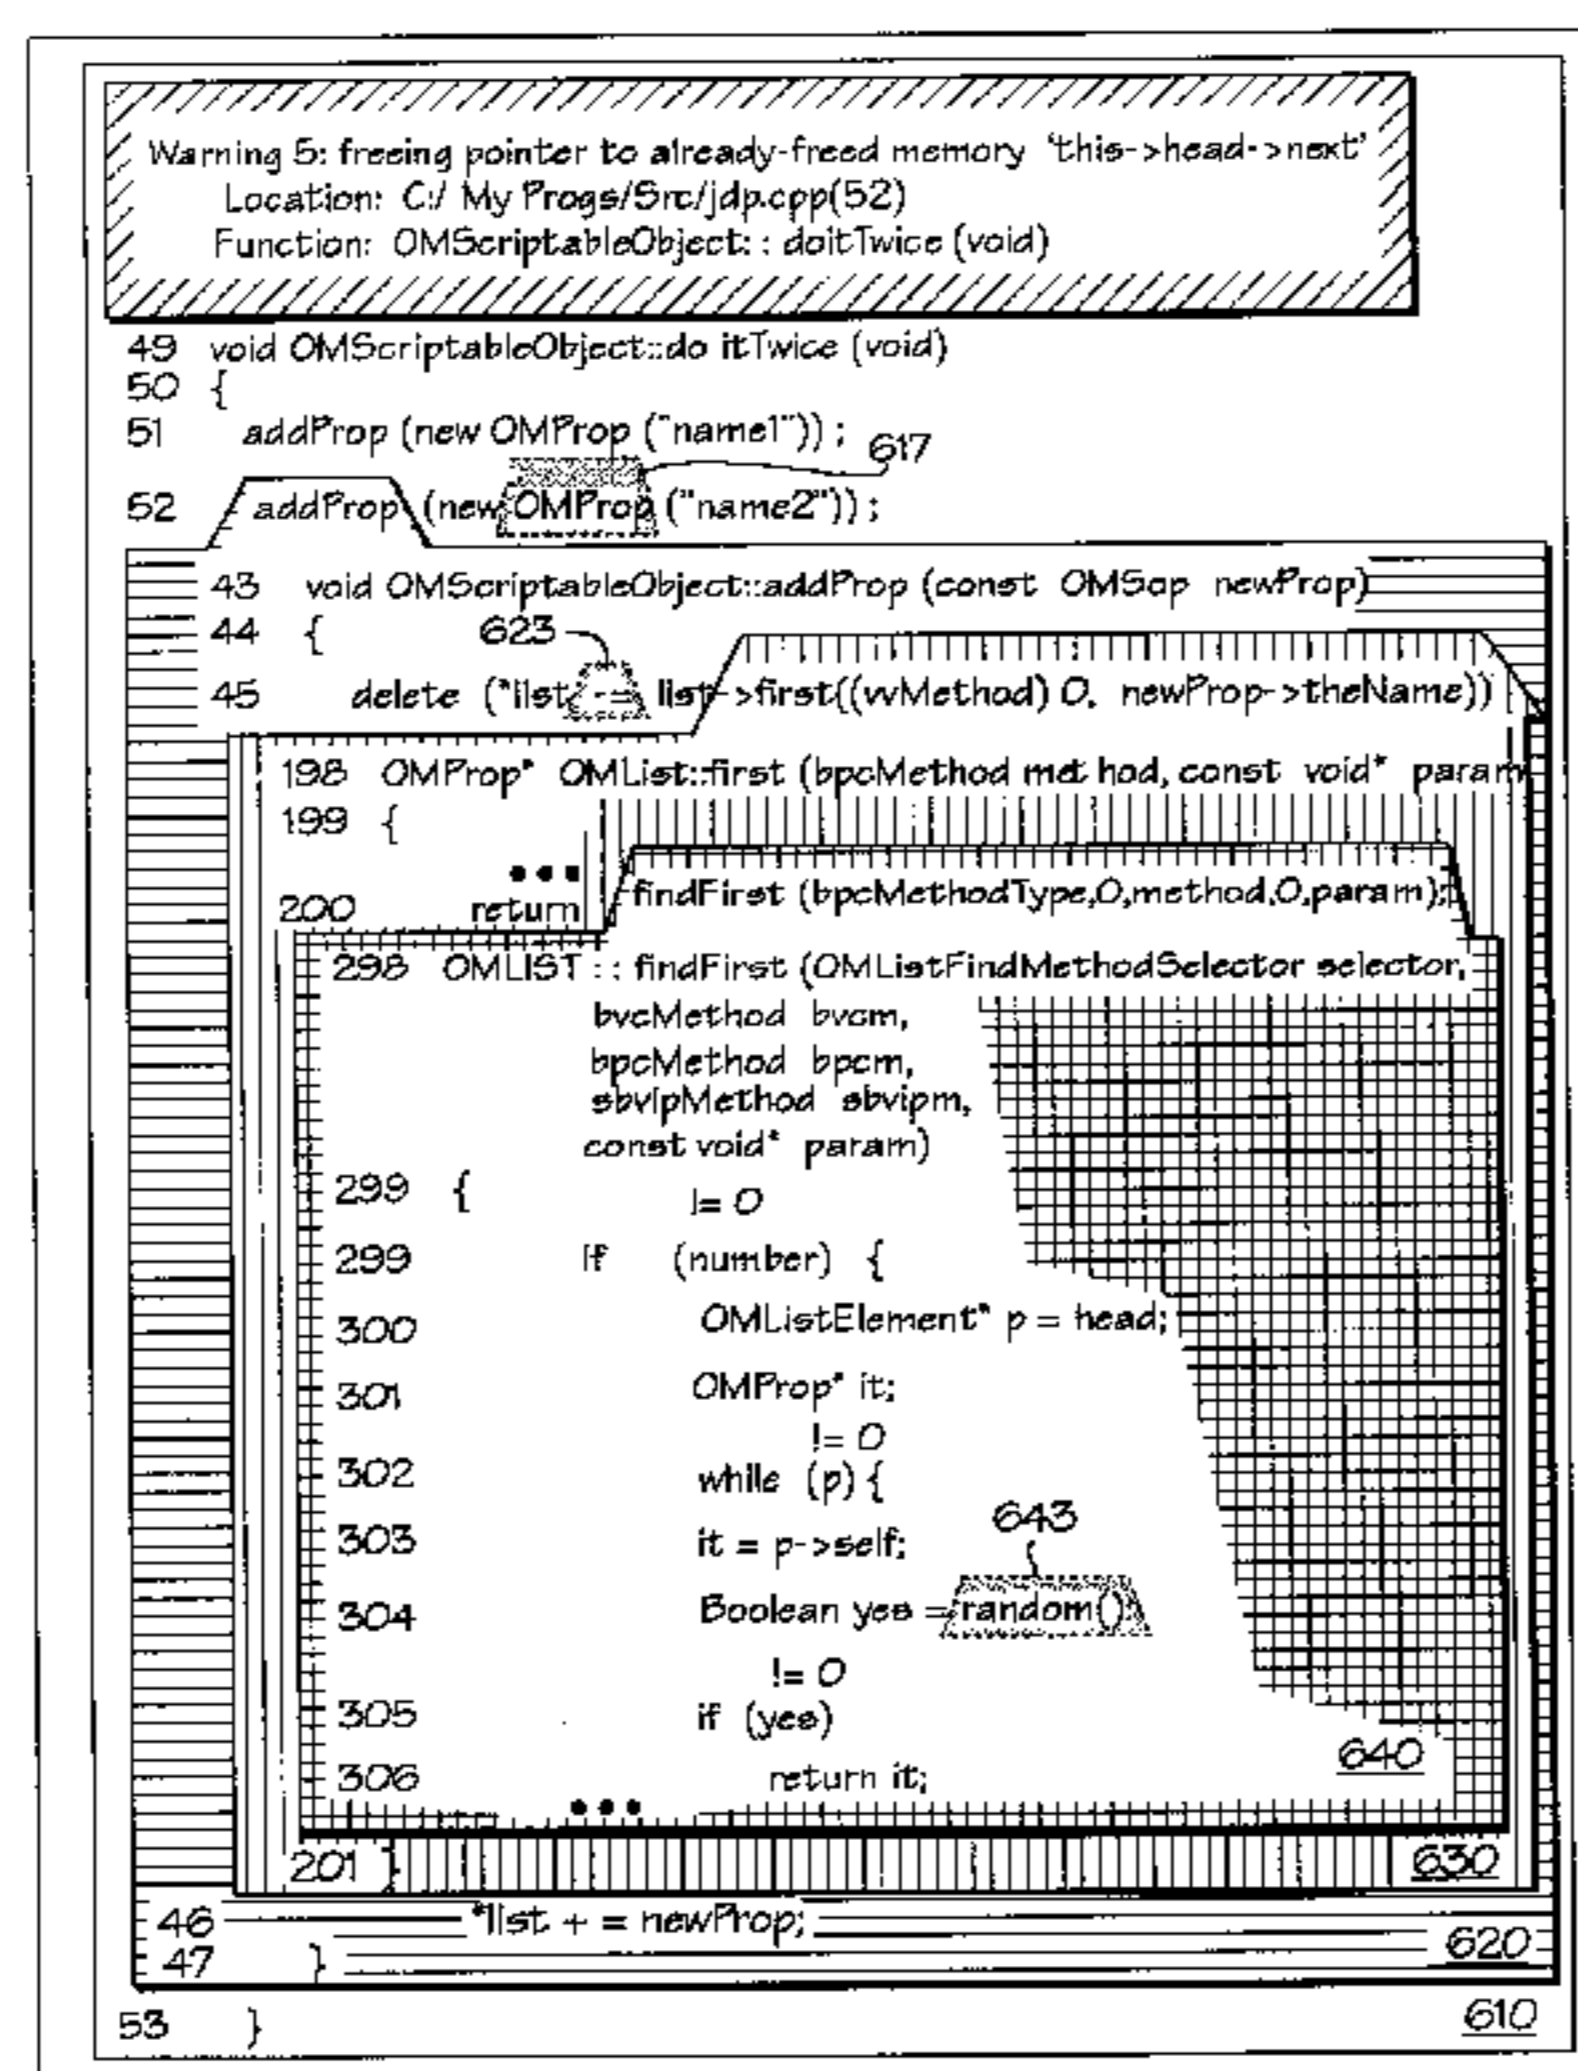 Warning 5: freeing pointer to already-freed memory 'this->head->next'
Location: C:/ My Progs/Src/jdp.cpp(52)
Function: OMScriptableObject: : doitTwice (void)
49 void OMScriptableObject::do itTwice (void)
50 {
51 addProp (new OMProp ("name1")) ;
617
52 addProp (new OMProp ("name2")) ;
43 void OMScriptableObject::addProp (const OMSop newProp)
44 { 623
45 delete (*list -= list->first((vvMethod) 0, newProp->theName))
198 OMProp* OMList::first (bpcMethod met hod, const void* param
199 {
•••
200 return findFirst (bpcMethodType,0,method,0,param);
298 OMLIST : : findFirst (OMListFindMethodSelector selector,
bvcMethod bvcm,
bpcMethod bpcm,
sbvipMethod sbvipm,
const void* param)
299 {
!= 0
299 if (number) {
300 OMListElement* p = head;
301 OMProp* it;
!= 0
302 while (p) {
303 it = p->self;
643
304 Boolean yes = random();
!= 0
305 if (yes)
640
306 return it;
•••
201 }
630
46 *list + = newProp;
620
47 }
53 }
610